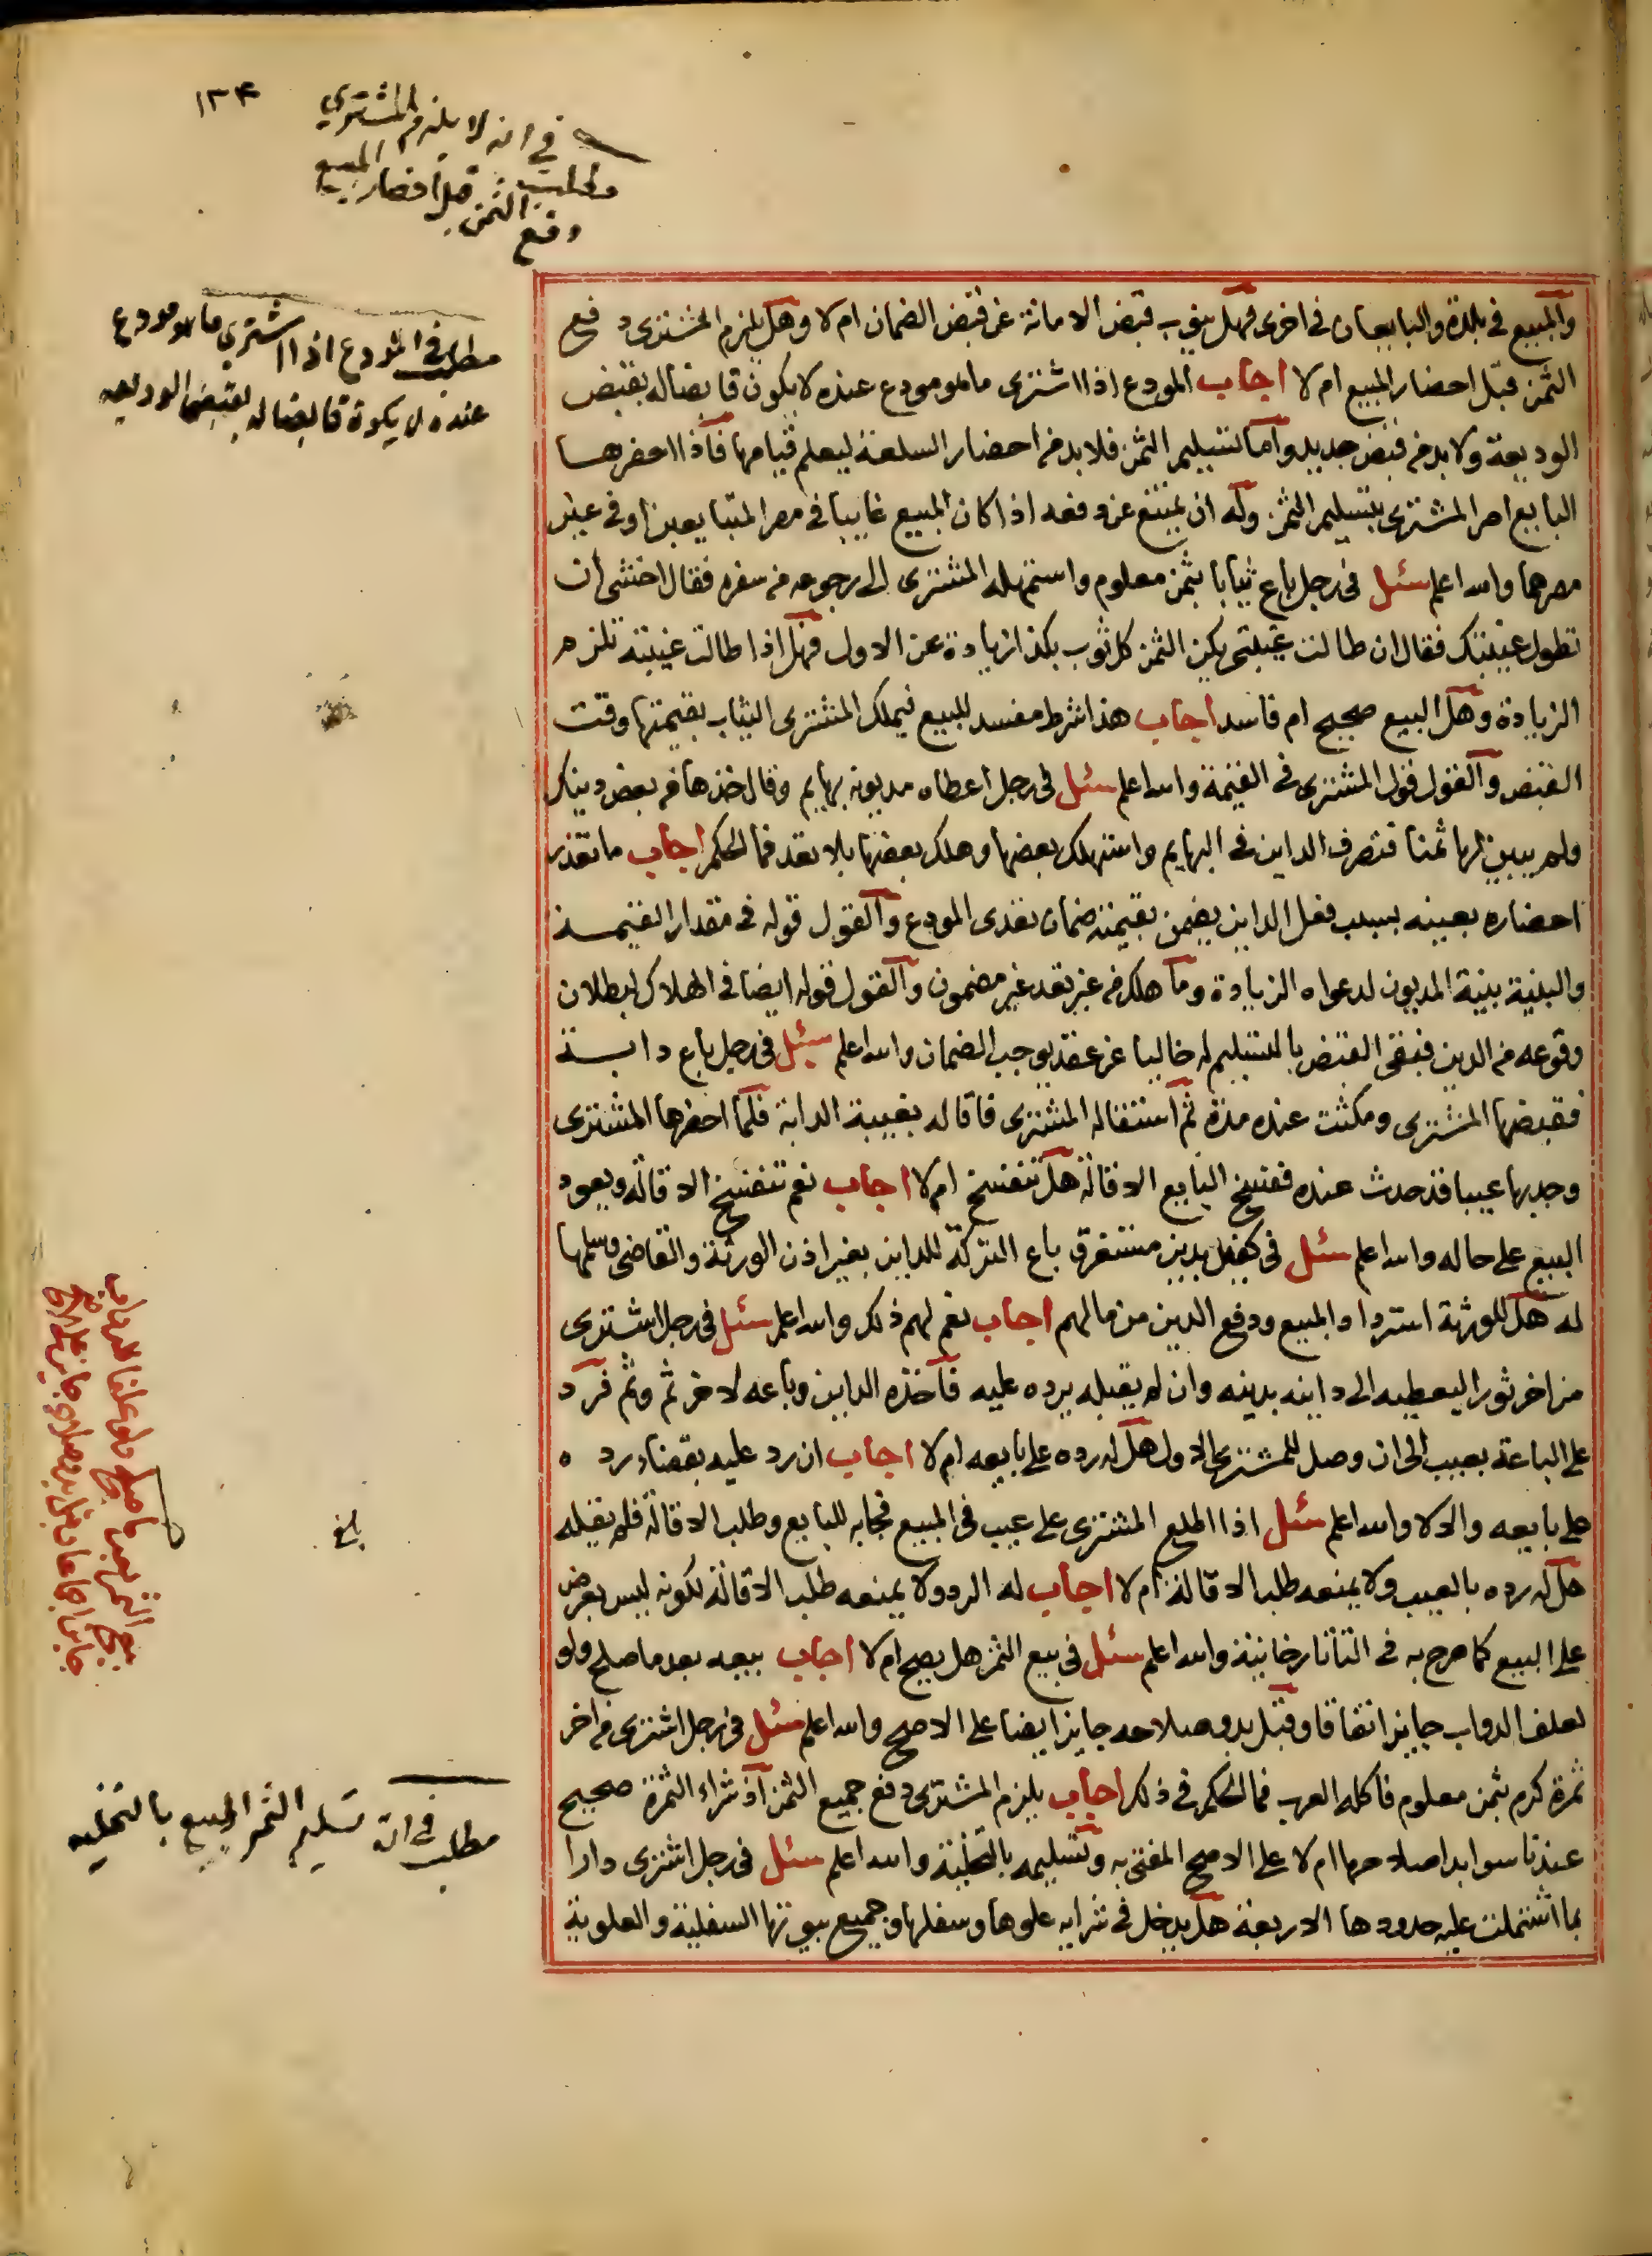 ١٣٤
في انه لا يلزم المشتري
مطلب
دفع الثمن قبل احضار المبيع
والمبيع في بلدة والبايعان في اخرى فهل ينوب قبض الامانة عن قبض الضمان ام لا وهل يلزم المشترى دفع
الثمن قبل احضار المبيع ام لا اجاب المودع اذا اشترى ما هو مودع عنده لا يكون قابضا له بقبض
الوديعة ولا بد من قبض جديد واما تسليم الثمن فلا بد من احضار السلعة ليعلم قيامها فاذا احضرها
البايع امر المشترى بتسليم الثمن وله ان يمتنع عن دفعه اذا كان المبيع غايبا في مصر المتبايعين او في غير
مصرهما والله اعلم سئل في رجل باع ثيابا بثمن معلوم واستمهله المشترى الى رجوعه من سفره فقال اخشى ان
تطول غيبتك فقال ان طالت غيبتي يكن الثمن كل ثوب بكذا زيادة عن الاول فهل اذا طالت غيبته تلزمه
الزيادة وهل البيع صحيح ام فاسد اجاب هذا شرط مفسد للبيع فيملك المشترى الثياب بقيمتها وقت
القبض والقول قول المشترى في القيمة والله اعلم سئل في رجل اعطاه مديونه بهايم وقال خذها من بعض دينك
ولم يبين لها ثمنا فتصرف الداين في البهايم واستهلك بعضها وهلك بعضها بلا تعد فما الحكم اجاب ما تعذر
احضاره بعينه بسبب فعل الداين يضمن بقيمته ضمان تعدى المودع والقول قوله في مقدار القيمة
والبينة بينة المديون لدعواه الزيادة وما هلك من غير تعد غير مضمون والقول قوله ايضا في الهلاك لبطلان
وقوعه من الدين فبقى القبض بالتسليم له خاليا عن عقد يوجب الضمان والله اعلم سئل في رجل باع دابة
فقبضها المشترى ومكثت عنده مدة ثم استقاله المشترى فاقاله بغيبة الدابة فلما احضرها المشترى
وجد بها عيبا قد حدث عنده ففسخ البايع الاقالة هل تنفسخ ام لا اجاب نعم تنفسخ الاقالة ويعود
البيع على حاله والله اعلم سئل في كفيل بدين مستغرق باع التركة للداين بغير اذن الورثة والقاضى وسلمها
له هل للورثة استرداد المبيع ودفع الدين من مالهم اجاب نعم لهم ذلك والله اعلم سئل في رجل اشترى
من اخر ثورا ليعطيه الى داينه بدينه وان لم يقبله يرده عليه فاخذه الداين وباعه لاخر ثم وثم فرد
على الباعة بعيب الى ان وصل للمشترى الاول هل له رده على بايعه ام لا اجاب ان رد عليه بقضاء رده
على بايعه والا لا والله اعلم سئل اذا اطلع المشترى على عيب في المبيع فجابه للبايع وطلب الاقالة فلم يقبله
هل له رده بالعيب ولا يمنعه طلب الاقالة ام لا اجاب له الرد ولا يمنعه طلب الاقالة لكونه ليس بعرض
على البيع كما صرح به في التاتارخانية والله اعلم سئل في بيع الثمر هل يصح ام لا اجاب بيعه بعد ما صلح ولو
لعلف الدواب جايز اتفاقا وقبل بدو صلاحه جايز ايضا على الاصح والله اعلم سئل في رجل اشترى من اخر
ثمرة كرم بثمن معلوم فاكله العرب فما الحكم في ذلك اجاب يلزم المشترى دفع جميع الثمن اذ شراء الثمرة صحيح
عندنا سوا بدا صلاحها ام لا على الاصح المفتى به وتسليمه بالتخلية والله اعلم سئل في رجل اشترى دارا
بما اشتملت عليه حدودها الاربعة هل يدخل في شرايه علوها وسفلها وجميع بيوتها السفلية والعلوية
مطلب في المودع اذا اشترى ما هو مودع
عنده لا يكون قابضا له بقبض الوديعه
بيع الثمر بعد ما صلح ولو علفا للدواب
جايز اجماعا وقبل بدو صلاحه جايز على الاصح
بلغ
مطلب في ان تسليم الثمر المبيع بالتخليه